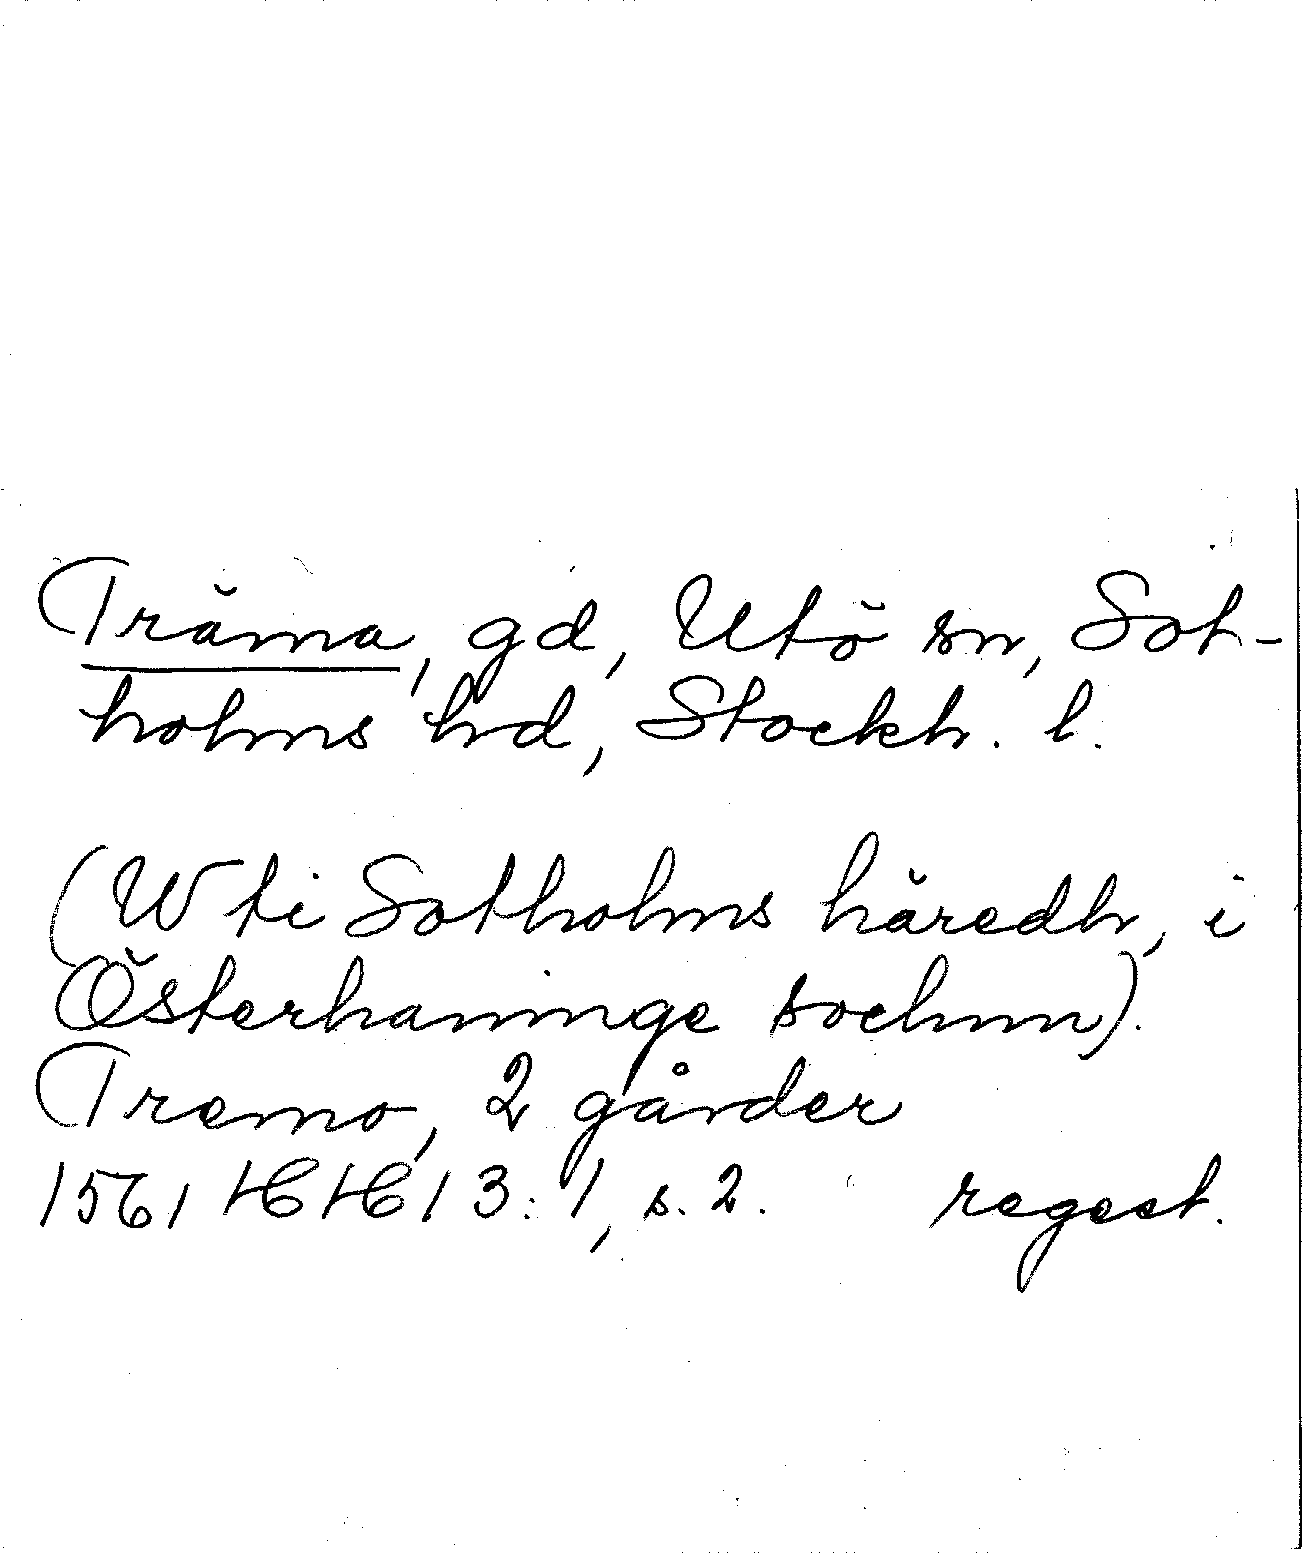 Träma, gd, Utö sn, Sot-
holms hd, Stockh. l.
(Wti Sotholms häredh, i
Österhaninge sochnn).
Tremo, 2 gårder
1561 HH 13:1, s. 2. regest.